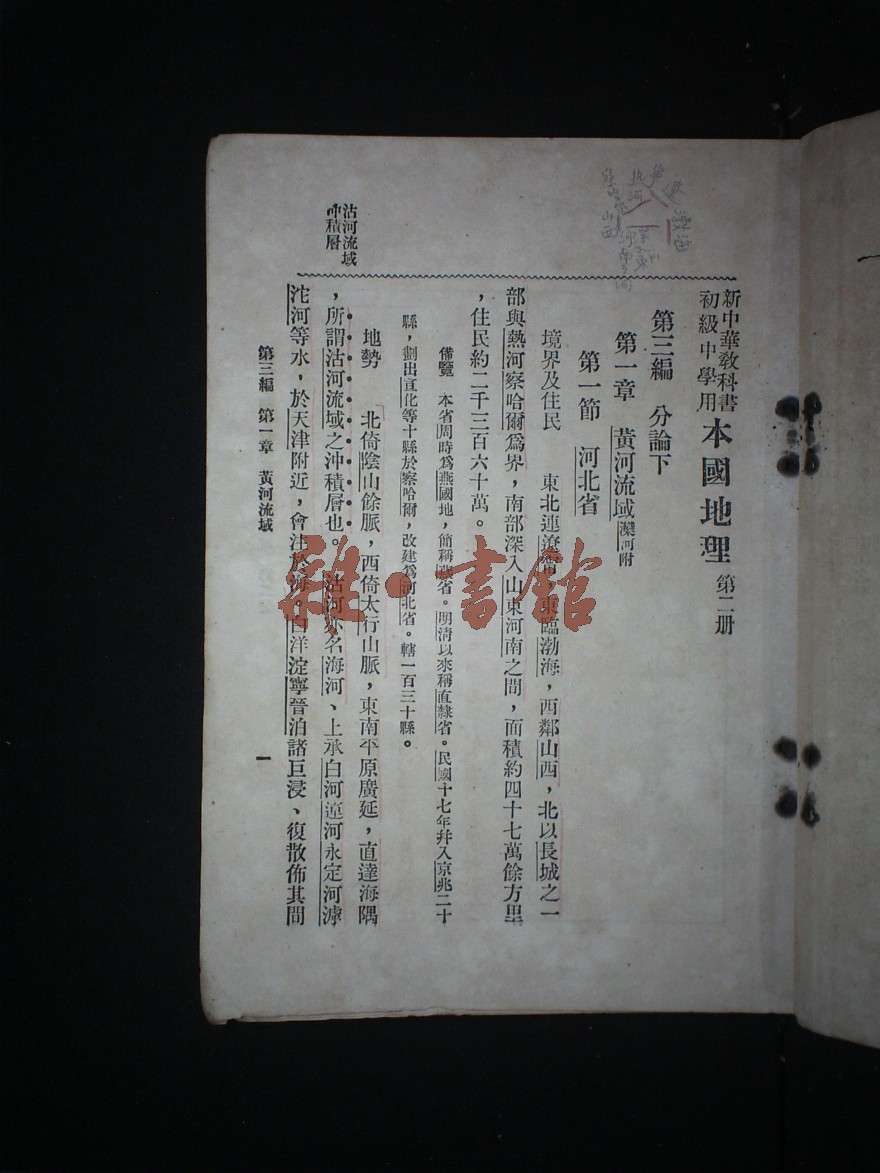 新中華教科書
初級中學用
本國地理 第二册
第三編 分論下
第一章 黃河流域灤河附
第一節 河北省
境界及住民 東北連遼寧,東臨渤海,西鄰山西,北以長城之一
部與熱河察哈爾爲界,南部深入山東河南之間,面積約四十七萬餘方里
,住民約二千三百六十萬。
備覽 本省周時爲燕國地,簡稱燕省。明清以來稱直隸省。民國十七年幷入京兆二十
縣,劃出宣化等十縣於察哈爾,改建爲河北省。轄一百三十縣。
地勢 北倚陰山餘脈,西倚太行山脈,東南平原廣延,直達海隅
,所謂沽河流域之沖積層也。沽河亦名海河、上承白河運河永定河滹
沱河等水,於天津附近,會注於海。白洋淀寧晉泊諸巨浸、復散佈其間
沽河流域
冲積層
第三編 第一章 黃河流域
一
雜·書館